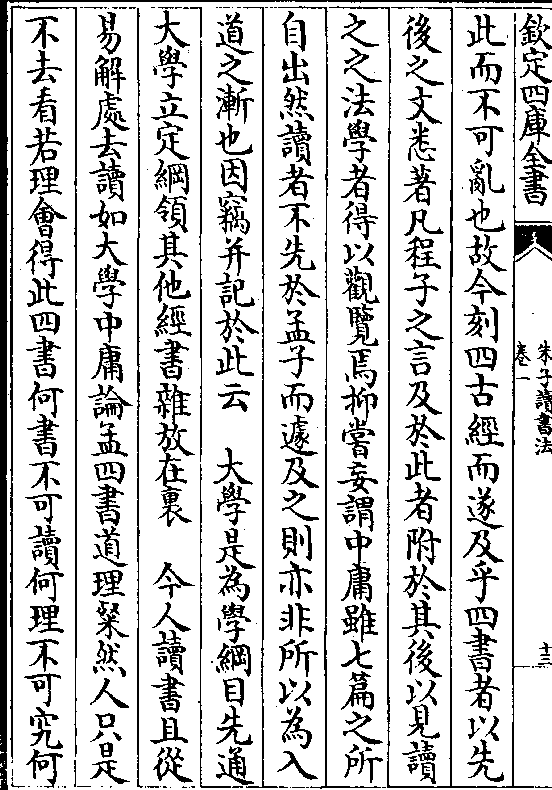 欽定四庫全書
朱子讀書法
卷一
十三
此而不可亂也故今刻四古經而遂及乎四書者以先
後之文悉著凡程子之言及於此者附於其後以見讀
之之法學者得以觀覽焉抑嘗妄謂中庸雖七篇之所
自出然讀者不先於孟子而遽及之則亦非所以為入
道之漸也因竊并記於此云　大學是為學綱目先通
大學立定綱領其他經書雜放在裏　今人讀書且從
易解處去讀如大學中庸論孟四書道理粲然人只是
不去看若理會得此四書何書不可讀何理不可究何